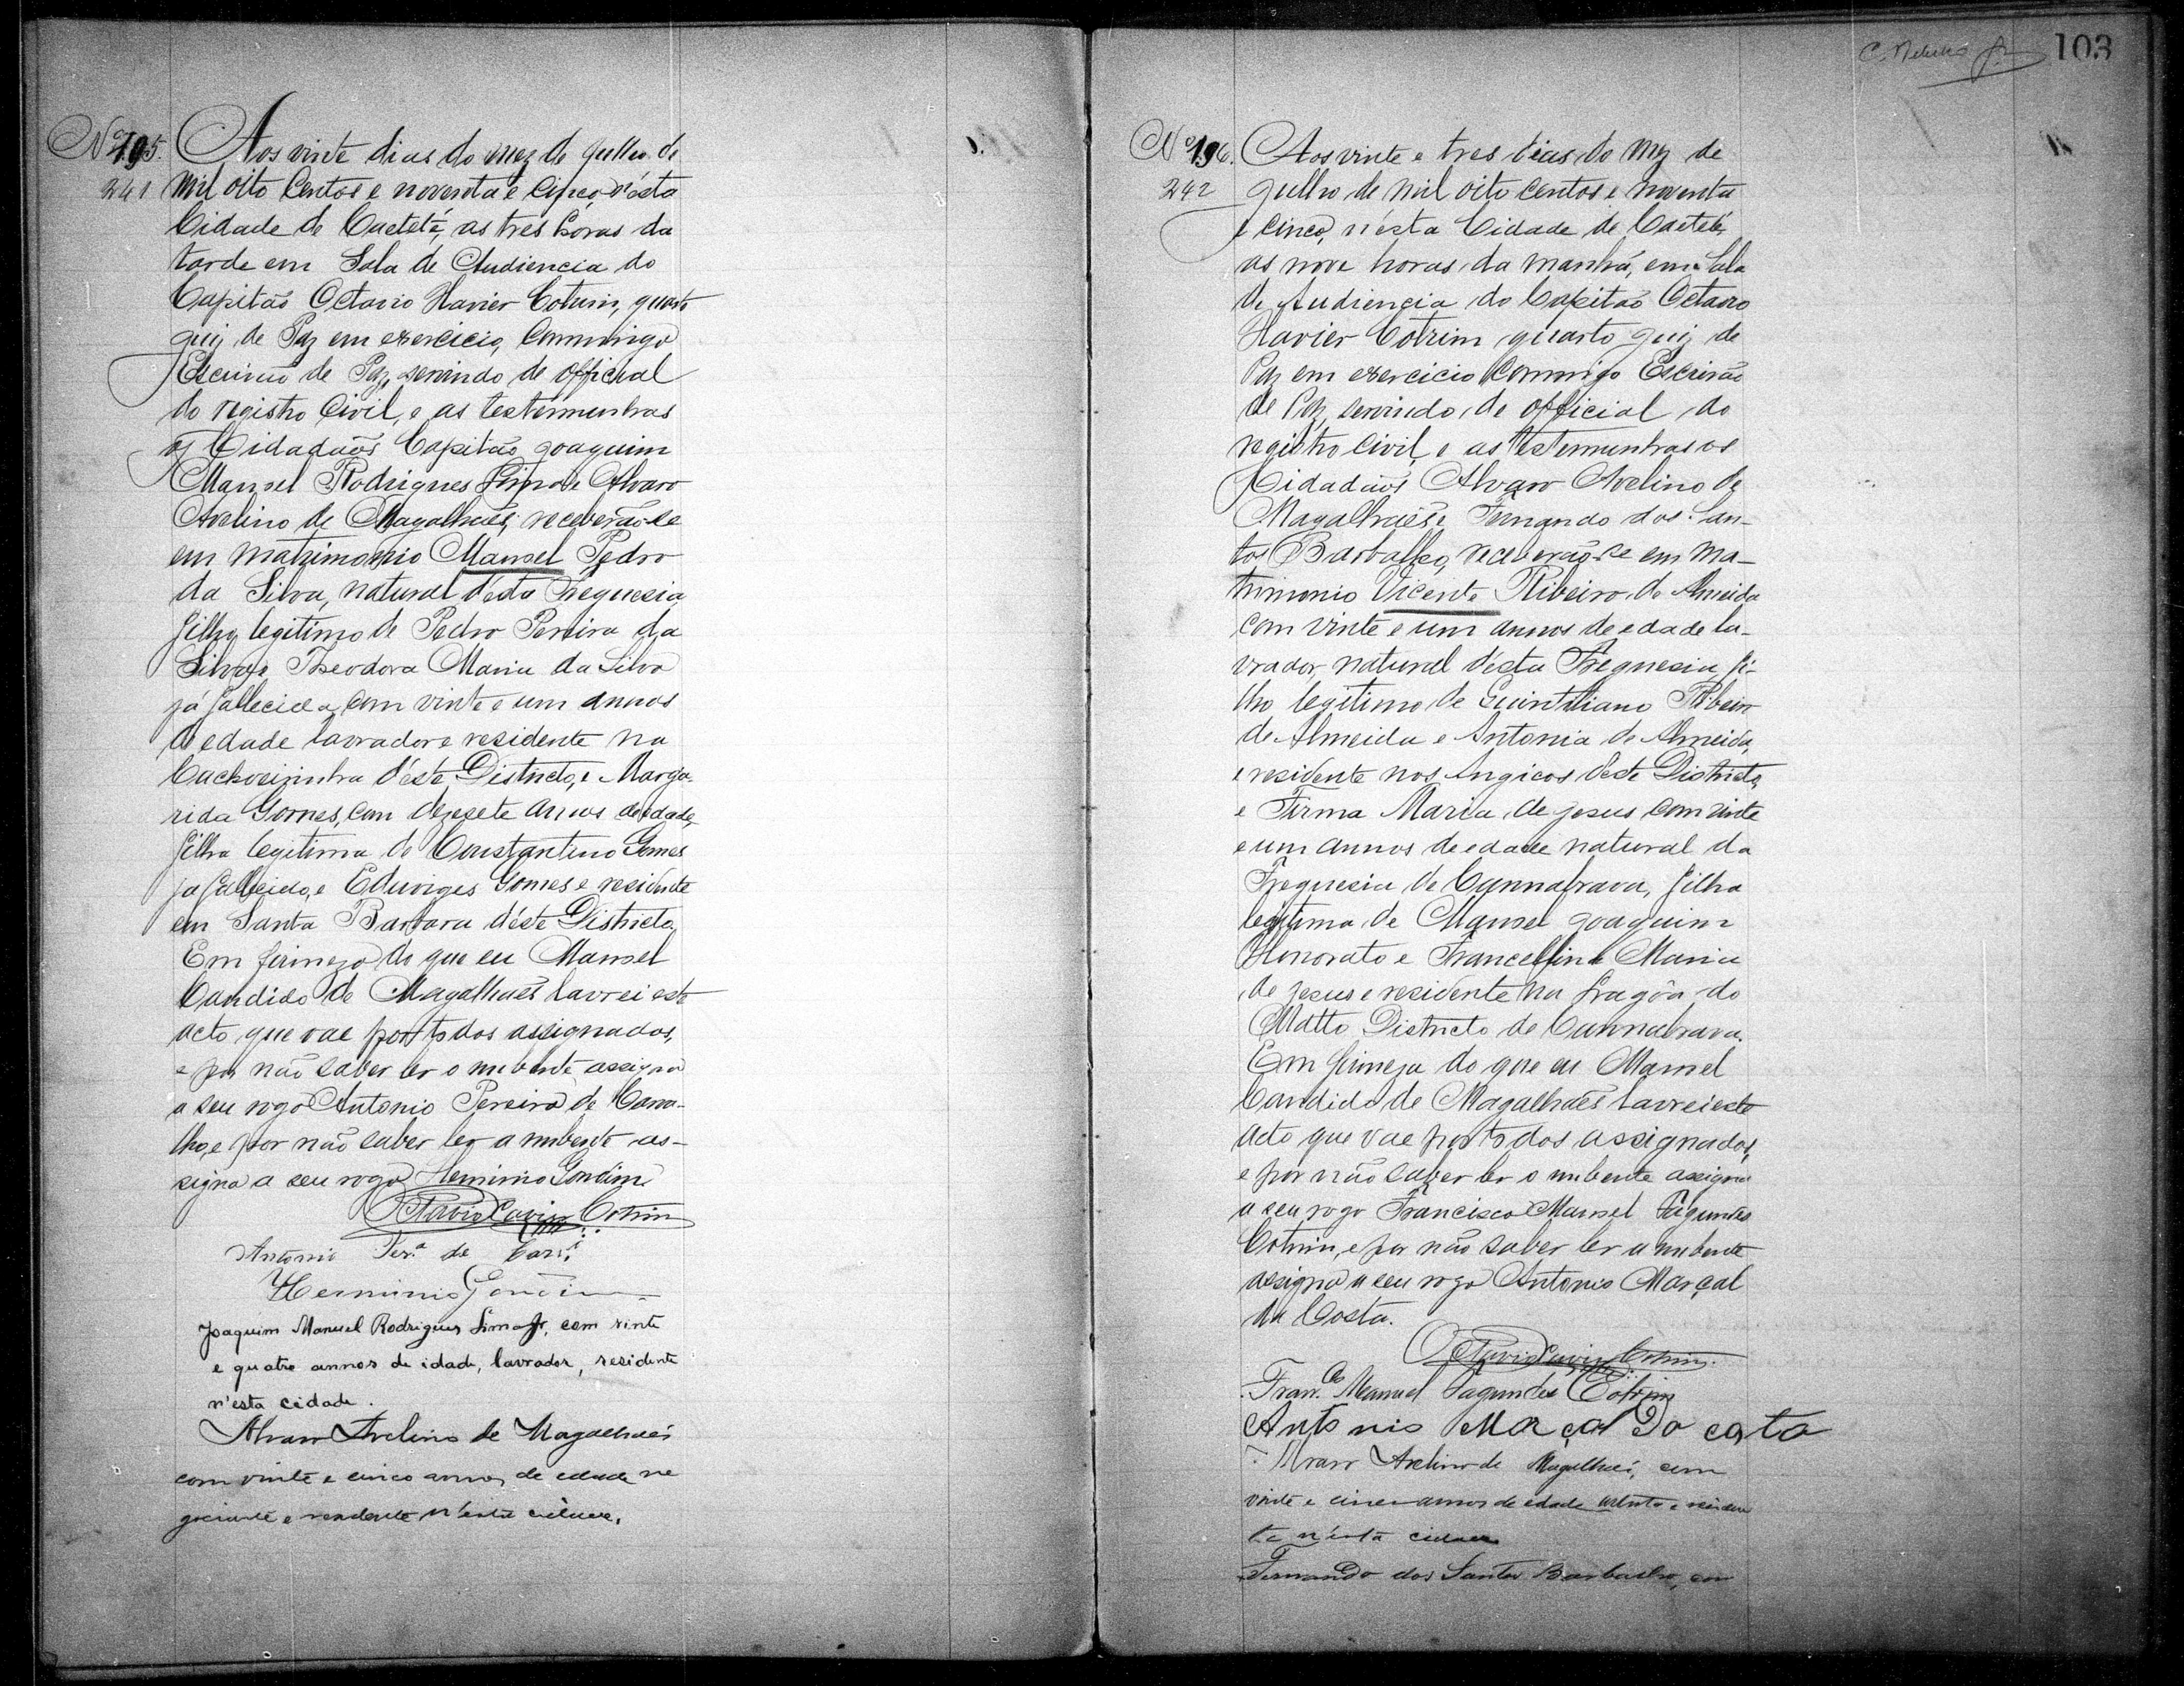 Nº 195.
241
Aos vinte dias do mez de Julho de
mil oito Centos e noventa e Cinco, n'ésta
Cidade de Caeteté, as tres hóras da
tarde em Sala de Audiencia do
Capitão Octavio Xavier Cotrim, quarto
juiz de Paz em exercicio, Commigo
Escrivão de Paz, servindo de official
do registro Civil, e as testemunhas
os Cidadãos Capitão Joaquim
Manoel Rodrigues Lima e Alvaro
Avelino de Magalhães, receberão-se
em matrimonio Manoel Pedro
da Silva, natural d'ésta Freguesia
filho legitimo de Pedro Pereira da
Silva e Theodora Maria da Silva
já fallecida, com vinte e um annos
de edade lavrador e residente na
Cachoeirinha d'éste Districto, e Marga-
rida Gomes, com dezesete annos de edade,
filha legitima de Constantino Gomes
ja fallecido, e Eduviges Gomes e residente
em Santa Barbara d'éste Districto.
Em firmeza do que eu Manoel
Candido de Magalhães lavrei este
acto que vae por todos assignados,
e por não saber ler o nubente assigna
a seu rogo Antonio Pereira de Carva-
lho, e por não saber ler a nubente as-
signa a seu rogo Herminio Gondim.
Octavio Xavier Cotrim
Antonio Per.ª de Carv.
Herminio Gondim
Joaquim Manuel Rodrigues Lima Jr, com vinte
e quatro annos de idade, lavrador, residente
n'esta cidade.
Alvaro Avelino de Magalhães
com vinte e cinco annos de edade ne
gociante e residente n'esta cidade.
103
Nº 196.
242
Aos vinte e tres dias do mez de
Julho de mil oito Centos e noventa
e cinco, n'ésta Cidade de Caeteté,
as nove horas da manhã, em Sala
de Audiencia do Capitão Octavio
Xavier Cotrim quarto juiz de
Paz em exercicio Commigo Escrivão
de Paz, servindo de official do
registro Civil, e as testemunhas os
Cidadãos Alvaro Avelino de
Magalhães e Fernando dos San-
tos Barbalho, receberão-se em ma-
trimonio Vicente Ribeiro de Almeida
com vinte e um annos de edade la-
vrador, natural d'ésta Freguesia, fi-
lho legitimo de Quintiliano Ribeiro
de Almeida e Antonia de Almeida,
e residente nos Angicos deste Districto,
e Firma Maria de Jesus com vinte
e um annos de edade natural da
Freguesia de Cannabrava, filha
legitima de Manoel Joaquim
Honorato e Francellina Maria
de Jesus e residente na Lagôa do
Matto Districto de Cannabrava.
Em firmeza do que eu Manoel
Candido de Magalhães lavrei este
acto que vae por todos assignados,
e por não saber ler o nubente assigna
a seu rogo Francisco Manoel Fagundes
Cotrim, e por não saber ler a nubente
assigna a seu rogo Antonio Marçal
da Costa.
Octavio Xavier Cotrim.
Fran.co Manoel Fagundes Cotrim
Antonio Marçal Da costa
Alvaro Avelino de Magalhães, com
vinte e cinco annos de edade artista e residen
te n'esta cidade
Fernando dos Santos Barbalho, com